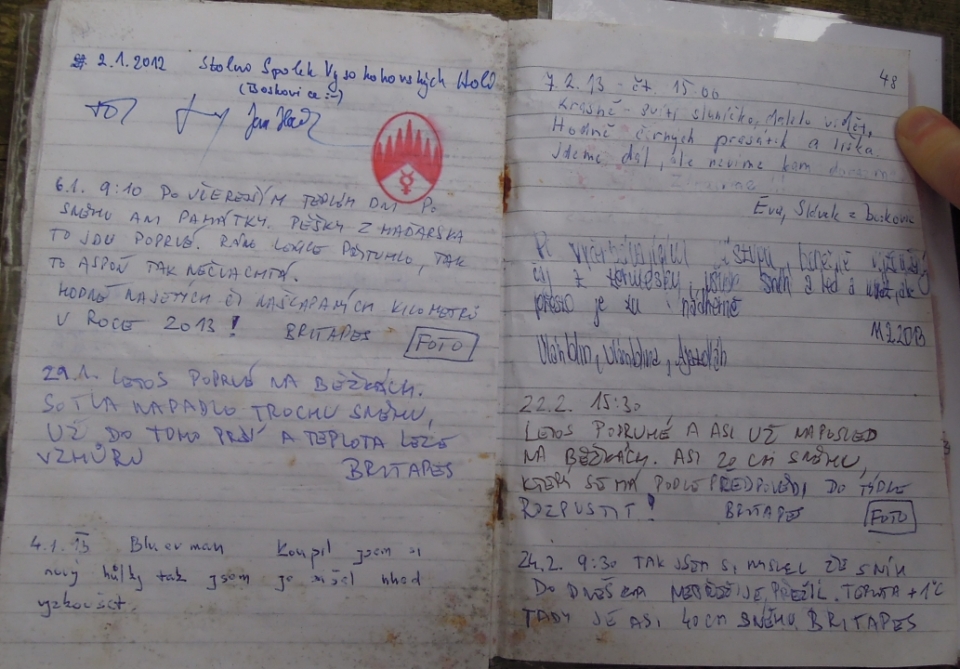 2.1.2012 Stolno Spolek Vysokohorských Hold
(Boskovice :-)
6.1. 9:10 PO VČEREJŠÍM TEPLÉM DNI PO
SNĚHU ANI PAMÁTKY. PĚŠKY Z MAĎARSKA
TO JDU POPRVÉ. RÁNO LEHCE PŘITUHLO, TAK
TO ASPOŇ TAK NEČVACHTÁ.
HODNĚ NAJETÝCH ČI NAŠLAPANÝCH KILOMETRŮ
V ROCE 2013! BRITAPES FOTO
29.1. LETOS POPRVÉ NA BĚŽKÁCH.
SOTVA NAPADLO TROCHU SNĚHU,
UŽ DO TOHO PRŠÍ A TEPLOTA LEZE
VZHŮRU BRITAPES
4.1. 13 Bluerman Koupil jsem si
nový hůlky tak jsem je šel hned
vyzkoušet.
48
7.2.13 - čt. 15.00
Krásně - svítí sluníčko, daleko vidět,
Hodně černých prasátek a liška.
Jdeme dál, ale nevíme kam
Eva, Slávek z Boskovic
sníh a led a
přesto je tu nádherně
11.2.2013
22.2. 15:30
LETOS PODRUHÉ A ASI UŽ NAPOSLED
NA BĚŽKÁCH. ASI 20 CM SNĚHU,
KTERÝ SE MÁ PODLE PŘEDPOVĚDI DO TÝDNE
ROZPUSTIT! BRITAPES FOTO
24.2. 9:30 TAK JSEM SI MYSLEL ŽE SNÍH
DO DNEŠKA NEPŘEŽIJE, PŘEŽIL. TEPLOTA +1°C
TADY JE ASI 40 CM SNĚHU. BRITAPES